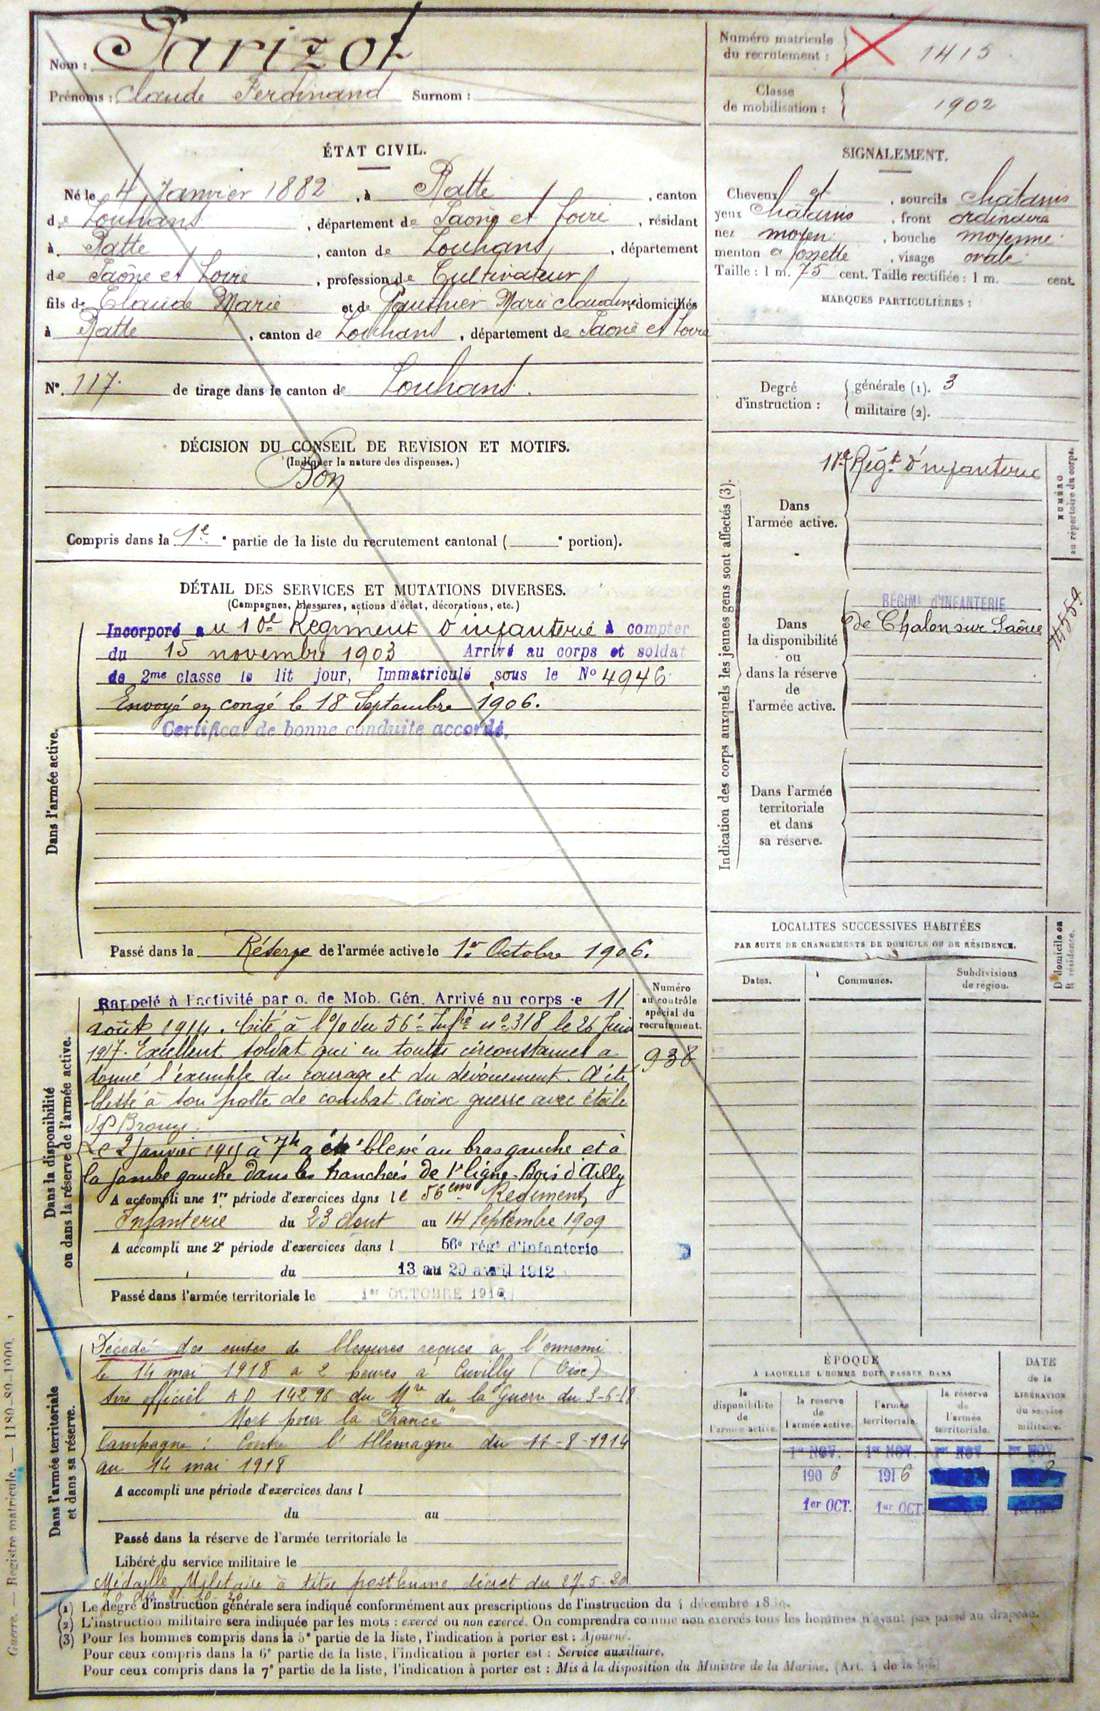 Nom : Parizot
Prénoms : Claude Ferdinand Surnom :
Numéro matricule du recrutement : 1415
Classe de mobilisation : 1902
ÉTAT CIVIL.
Né le 4 Janvier 1882, à Ratte, canton
de Louhans, département de Saône et Loire, résidant
à Ratte, canton de Louhans, département
de Saône et Loire, profession de Cultivateur
fils de Claude Marie et de Gauthier Marie Claudine, domiciliés
à Ratte, canton de Louhans, département de Saône et Loire
N°. 117. de tirage dans le canton de Louhans.
SIGNALEMENT.
Cheveux et, sourcils châtains
yeux châtains, front ordinaire
nez moyen, bouche moyenne
menton à fossette, visage ovale
Taille : 1 m. 75 cent. Taille rectifiée : 1 m. cent.
MARQUES PARTICULIÈRES :
Degré d'instruction : générale (1). 3
militaire (2).
DÉCISION DU CONSEIL DE REVISION ET MOTIFS.
(Indiquer la nature des dispenses.)
Bon
Compris dans la 1e partie de la liste du recrutement cantonal ( e portion).
DÉTAIL DES SERVICES ET MUTATIONS DIVERSES.
(Campagnes, blessures, actions d'éclat, décorations, etc.)
Dans l'armée active.
Incorporé au 10e Régiment d'infanterie à compter
du 15 novembre 1903 Arrivé au corps et soldat
de 2me classe le dit jour, Immatriculé sous le No 4946.
Envoyé en congé le 18 Septembre 1906.
Certificat de bonne conduite accordé.
Passé dans la Réserve de l'armée active le 1er Octobre 1906.
Indication des corps auxquels les jeunes gens sont affectés (3).
Dans l'armée active.
Régt d'infanterie
NUMÉRO au répertoire du corps.
Dans la disponibilité ou dans la réserve de l'armée active.
RÉGIMt D'INFANTERIE
de Chalon sur Saône
Dans l'armée territoriale et dans sa réserve.
LOCALITES SUCCESSIVES HABITÉES
PAR SUITE DE CHANGEMENTS DE DOMICILE OU DE RÉSIDENCE.
Dates. Communes. Subdivisions de région. D domicile ou R résidence.
Dans la disponibilité ou dans la réserve de l'armée active.
Numéro au contrôle spécial du recrutement.
938
Rappelé à l'activité par o. de Mob. Gén. Arrivé au corps le 11
août 1914. Cité à l'o/ du 56e Infie no 318 le 26 Juin
1917. Excellent soldat qui en toutes circonstances a
donné l'exemple du courage et du dévouement. A été
blessé à son poste de combat. Croix guerre avec étoile
de Bronze.
Le 2 janvier 1915 à 7h a été blessé au bras gauche et à
la jambe gauche dans les tranchées de 1e ligne. Bois d'Ailly
A accompli une 1re période d'exercices dans le 56ème Régiment
Infanterie du 23 Aout au 14 Septembre 1909
A accompli une 2e période d'exercices dans l 56e régt d'infanterie
du 13 au 29 avril 1912
Passé dans l'armée territoriale le 1er OCTOBRE 1916
Dans l'armée territoriale et dans sa réserve.
Décédé des suites de blessures reçues à l'ennemi
le 14 mai 1918 à 2 heures à Cuvilly (Oise)
Avis officiel A D 14296 du Mre de la Guerre du 3-6-18
"Mort pour la France"
Campagne : Contre l'Allemagne du 11-8-1914
au 14 mai 1918
A accompli une période d'exercices dans l
du au
Passé dans la réserve de l'armée territoriale le
Libéré du service militaire le
Médaille Militaire à titre posthume décret du 27-5-20
ÉPOQUE
A LAQUELLE L'HOMME DOIT PASSER DANS
la disponibilité de l'armée active. la réserve de l'armée active. l'armée territoriale. la réserve de l'armée territoriale.
DATE de la LIBÉRATION du service militaire.
1er NOV. 1er NOV. 1er NOV. 1er NOV.
1906 1916
1er OCT. 1er OCT.
(1) Le degré d'instruction générale sera indiqué conformément aux prescriptions de l'instruction du 4 décembre
(2) L'instruction militaire sera indiquée par les mots : exercé ou non exercé. On comprendra comme non exercés tous les hommes n'ayant pas passé au drapeau.
(3) Pour les hommes compris dans la 5e partie de la liste, l'indication à porter est : Ajourné.
Pour ceux compris dans la 6e partie de la liste, l'indication à porter est : Service auxiliaire.
Pour ceux compris dans la 7e partie de la liste, l'indication à porter est : Mis à la disposition du Ministre de la Marine. (Art. 4 de la loi)
Guerre. — Registre matricule. — 1180-89-1900.